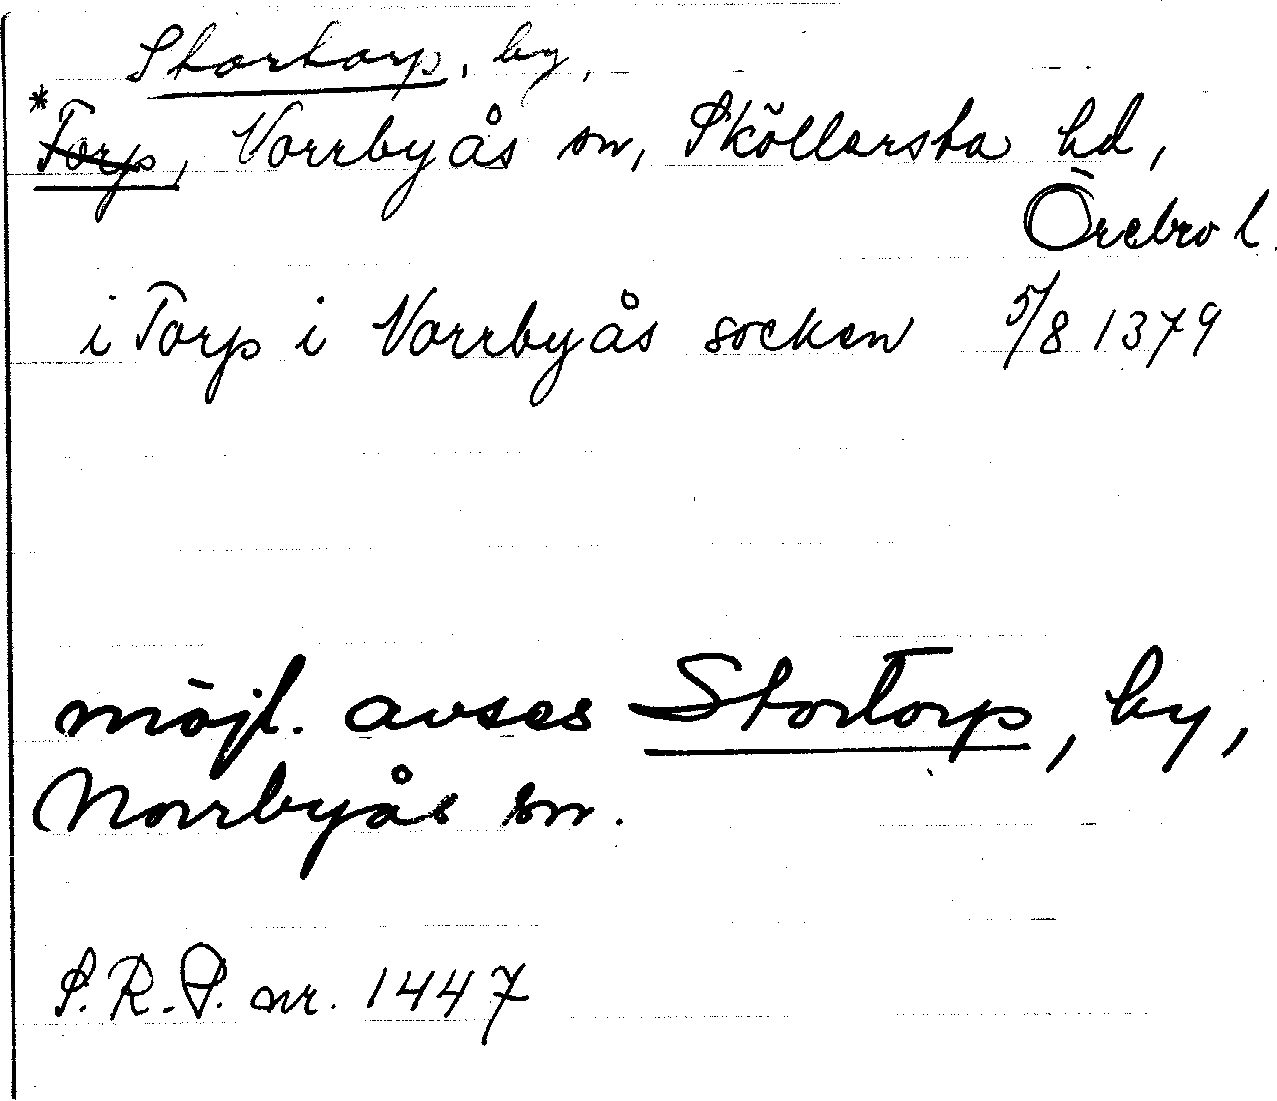 Stortorp, by,
*Torp, Norrbyås sn, Sköllersta hd,
Örebro l.
i Torp i Norrbyås socken 5/8 1379
möjl. avses Stortorp, by,
Norrbyås sn.
S.R.P. nr. 1447